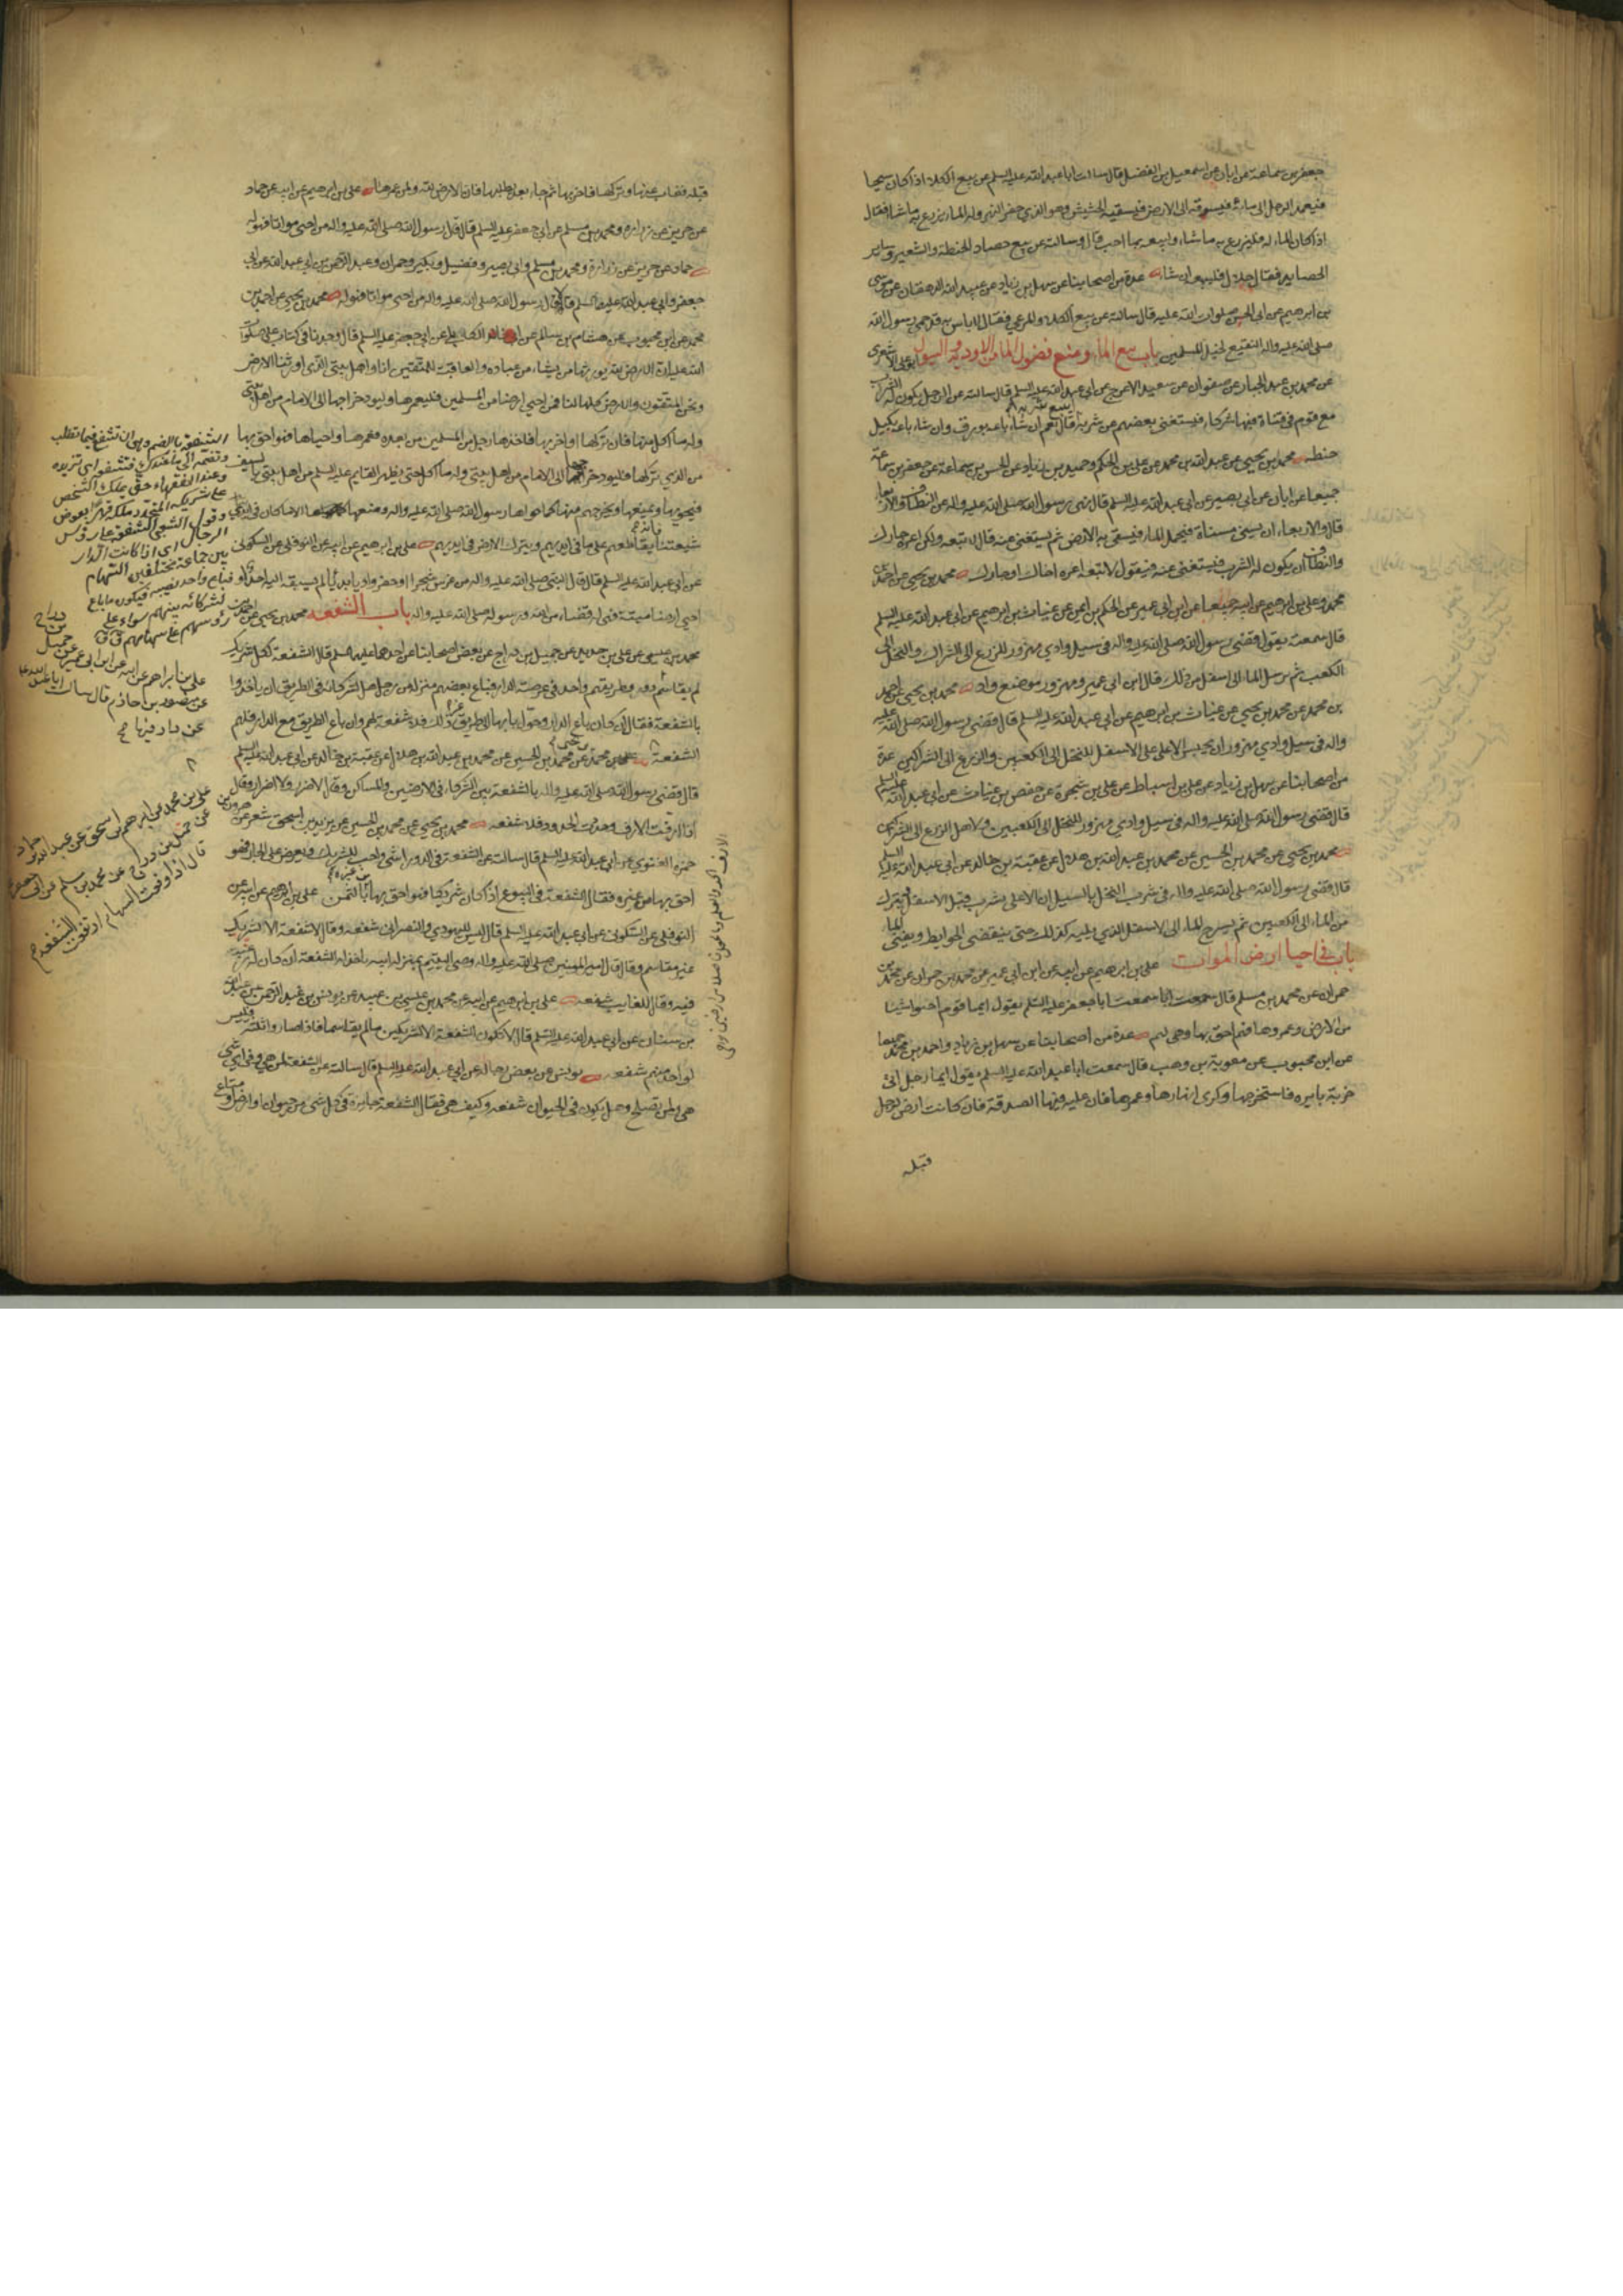 جعفر بن سماعة عن ابان عن اسمعيل بن الفضل قال سالت ابا عبد الله عليه السلم عن بيع الكلاء اذا كان سيحا
فيعمد الرجل الى مائه فيسوقه الى الارض فيسقيه الحشيش وهو الذي حفر النهر وله الماء يزرع به ما شاء فقال
اذا كان الماء له فليزرع به ما شاء وليبعه بما احب قال وسالته عن بيع حصاد الحنطة والشعير وساير
الحصايد فقال حلال فليبعه ان شاء عدة من اصحابنا عن سهل بن زياد عن عبيد الله الدهقان عن موسى
بن ابرهيم عن ابي الحسن صلوات الله عليه قال سالته عن بيع الكلاء والمرعي فقال لا باس به قد حمى رسول الله
صلى الله عليه واله النقيع لخيل المسلمين باب بيع الماء ومنع فضول الماء من الاودية والسيول ابو علي الاشعري
عن محمد بن عبد الجبار عن صفوان عن سعيد الاعرج عن ابي عبد الله عليه السلم قال سالته عن الرجل يكون له الشرب
مع قوم في قناة فيها شركاء فيستغنى بعضهم عن شربه ايبيع شربه قال نعم ان شاء باعه بورق وان شاء باعه بكيل
حنطه محمد بن يحيى عن عبد الله بن محمد عن علي بن الحكم وحميد بن زياد عن الحسن بن سماعة عن جعفر بن سماعة
جميعا عن ابان عن ابي بصير عن ابي عبد الله عليه السلم قال نهى رسول الله صلى الله عليه واله عن النطاف والاربعا
قال والاربعاء ان يسنى مسناة فيحمل الماء فيسقى به الارض ثم يستغنى عنه قال لا تبعه ولكن اعره جارك
والنطاف ان يكون له الشرب فيستغنى عنه فيقول لا تبعه اعره اخاك او جارك محمد بن يحيى عن احمد بن
محمد وعلي بن ابرهيم عن ابيه جميعا عن ابن ابي عمير عن الحكم بن ايمن عن غياث بن ابرهيم عن ابي عبد الله عليه السلم
قال سمعته يقول قضى رسول الله صلى الله عليه واله في سيل وادي مهزور للزرع الى الشراك وللنخل الى
الكعب ثم يرسل الماء الى اسفل من ذلك قال ابن ابي عمير ومهزور موضع واد محمد بن يحيى عن احمد
بن محمد عن محمد بن يحيى عن غياث بن ابرهيم عن ابي عبد الله عليه السلم قال قضى رسول الله صلى الله عليه
واله في سيل وادي مهزور ان يحبس الاعلى على الاسفل للنخل الى الكعبين والزرع الى الشراكين عدة
من اصحابنا عن سهل بن زياد عن علي بن اسباط عن علي بن شجرة عن حفص بن غياث عن ابي عبد الله عليه السلم
قال قضى رسول الله صلى الله عليه واله في سيل وادي مهزور للنخل الى الكعبين ولاهل الزرع الى الشراكين
محمد بن يحيى عن محمد بن الحسين عن محمد بن عبد الله بن هلال عن عقبة بن خالد عن ابي عبد الله عليه السلم
قال قضى رسول الله صلى الله عليه واله في شرب النخل بالسيل ان الاعلى يشرب قبل الاسفل يترك
من الماء الى الكعبين ثم يسرح الماء الى الاسفل الذي يليه كذلك حتى ينقضي الحوايط ويفنى الماء
باب في احيا ارض الموات علي بن ابرهيم عن ابيه عن ابن ابي عمير عن محمد بن حمران عن محمد بن
حمران عن محمد بن مسلم قال سمعت ابا جعفر عليه السلم يقول ايما قوم احيوا شيئا
من الارض وعمروها فهم احق بها وهي لهم عدة من اصحابنا عن سهل بن زياد واحمد بن محمد جميعا
عن ابن محبوب عن معوية بن وهب قال سمعت ابا عبد الله عليه السلم يقول ايما رجل اتى
خربة بايره فاستخرجها وكرى انهارها وعمرها فان عليه فيها الصدقة فان كانت ارض لرجل
قبله
قبله فغاب عنها وتركها فاخربها ثم جاء بعد يطلبها فان الارض لله ولمن عمرها علي بن ابرهيم عن ابيه عن حماد
عن حريز عن زراره ومحمد بن مسلم عن ابي جعفر عليه السلم قال قال رسول الله صلى الله عليه واله من احيى مواتا فهو له
حماد عن حريز عن زرارة ومحمد بن مسلم وابي بصير وفضيل وبكير وحمران وعبد الرحمن بن ابي عبد الله عن ابي
جعفر وابي عبد الله عليهما السلم قالا قال رسول الله صلى الله عليه واله من احيى مواتا فهو له محمد بن يحيى عن احمد بن
محمد عن ابن محبوب عن هشام بن سالم عن ابي خالد الكابلي عن ابي جعفر عليه السلم قال وجدنا في كتاب علي صلوات
الله عليه ان الارض لله يورثها من يشاء من عباده والعاقبة للمتقين انا واهل بيتي الذي اورثنا الارض
ونحن المتقون والارض كلها لنا فمن احيى ارضا من المسلمين فليعمرها وليود خراجها الى الامام من اهل بيتي
وله ما اكل منها فان تركها او اخربها فاخذها رجل من المسلمين من بعده فعمرها واحياها فهو احق بها
من الذي تركها فليود خراجها الى الامام من اهل بيتي وله ما اكل حتى يظهر القايم عليه السلم من اهل بيتي بالسيف
فيحويها ويمنعها ويخرجهم منها كما حواها رسول الله صلى الله عليه واله ومنعها الا ما كان في ايدي
شيعتنا فانه يقاطعهم على ما في ايديهم ويترك الارض في ايديهم علي بن ابرهيم عن ابيه عن النوفلي عن السكوني
عن ابي عبد الله عليه السلم قال قال النبي صلى الله عليه واله من غرس شجرا او حفر واديا بديا لم يسبقه اليه احد او
احيى ارضا ميتة فهي له قضاء من الله ورسوله صلى الله عليه واله باب الشفعه محمد بن يحيى عن احمد بن
محمد بن عيسى عن علي بن حديد عن جميل بن دراج عن بعض اصحابنا عن احدهما عليهما السلم قال الشفعة لكل شريك
لم يقاسم دور وطريقهم واحد في عرصة الدار فباع بعضهم منزله من رجل هل لشركائه في الطريق ان ياخذوا
بالشفعة فقال ان كان باع الدار وحول بابها الى طريق غير ذلك فلا شفعة لهم وان باع الطريق مع الدار فلهم
الشفعة محمد بن يحيى عن محمد بن الحسين عن محمد بن عبد الله بن هلال عن عقبة بن خالد عن ابي عبد الله عليه السلم
قال قضى رسول الله صلى الله عليه واله بالشفعة بين الشركاء في الارضين والمساكن وقال لا ضرر ولا اضرار وقال
اذا ارفت الارف وحدت الحدود فلا شفعه محمد بن يحيى عن محمد بن الحسين عن يزيد بن اسحق شعر عن هرون بن
حمزه الغنوي عن ابي عبد الله عليه السلم قال سالته عن الشفعة في الدور اشئ واجب للشريك ويعرض على الجار فهو
احق بها من غيره فقال الشفعة في البيوع اذا كان شريكا فهو احق بها من غيره بالثمن علي بن ابرهيم عن ابيه عن
النوفلي عن السكوني عن ابي عبد الله عليه السلم قال ليس لليهودي والنصراني شفعه وقال لا شفعة الا لشريك
غير مقاسم وقال قال امير المومنين صلى الله عليه واله وصى اليتيم بمنزله ابيه ياخذ له الشفعة ان كان له رغبة
فيه وقال للغايب شفعه علي بن ابرهيم عن ابيه عن محمد بن عيسى بن عبيد عن يونس بن عبد الرحمن عن عبد الله
بن سنان عن ابي عبد الله عليه السلم قال لا تكون الشفعة الا لشريكين ما لم يقاسما فاذا صاروا ثلثة فليس
لواحد منهم شفعه يونس عن بعض رجاله عن ابي عبد الله عليه السلم قال سالته عن الشفعة لمن هي وفي اي شئ
هي ولمن تصلح وهل يكون في الحيوان شفعه وكيف هي فقال الشفعة جايزة في كل شئ من حيوان او ارض او متاع
الشفعة بالضم وهي ان تشفع فيما تطلب
وتضمه الى ما عندك فتشفعه اى تزيده
وعند الفقهاء حق يملك الشخص
على شريكه المتجدد ملكه قهرا بعوض
وقول الشعبي الشفعة على رؤس
الرجال اى اذا كانت الدار
بين جماعة مختلفين السهام
فباع واحد نصيبه فيكون ما باع
لشركائه بينهم سواء على
رؤسهم لا على سهامهم ق
علي بن ابراهيم عن ابيه عن ابن ابي عمير عن جميل بن دراج
عن منصور بن حازم قال سالت ابا عبد الله ع
عن دار فيها
علي بن محمد عن ابرهيم بن اسحق عن عبد الله بن حماد
عن جميل بن دراج عن محمد بن مسلم عن ابي جعفر
قال اذا وقعت السهام ارتفعت الشفعة